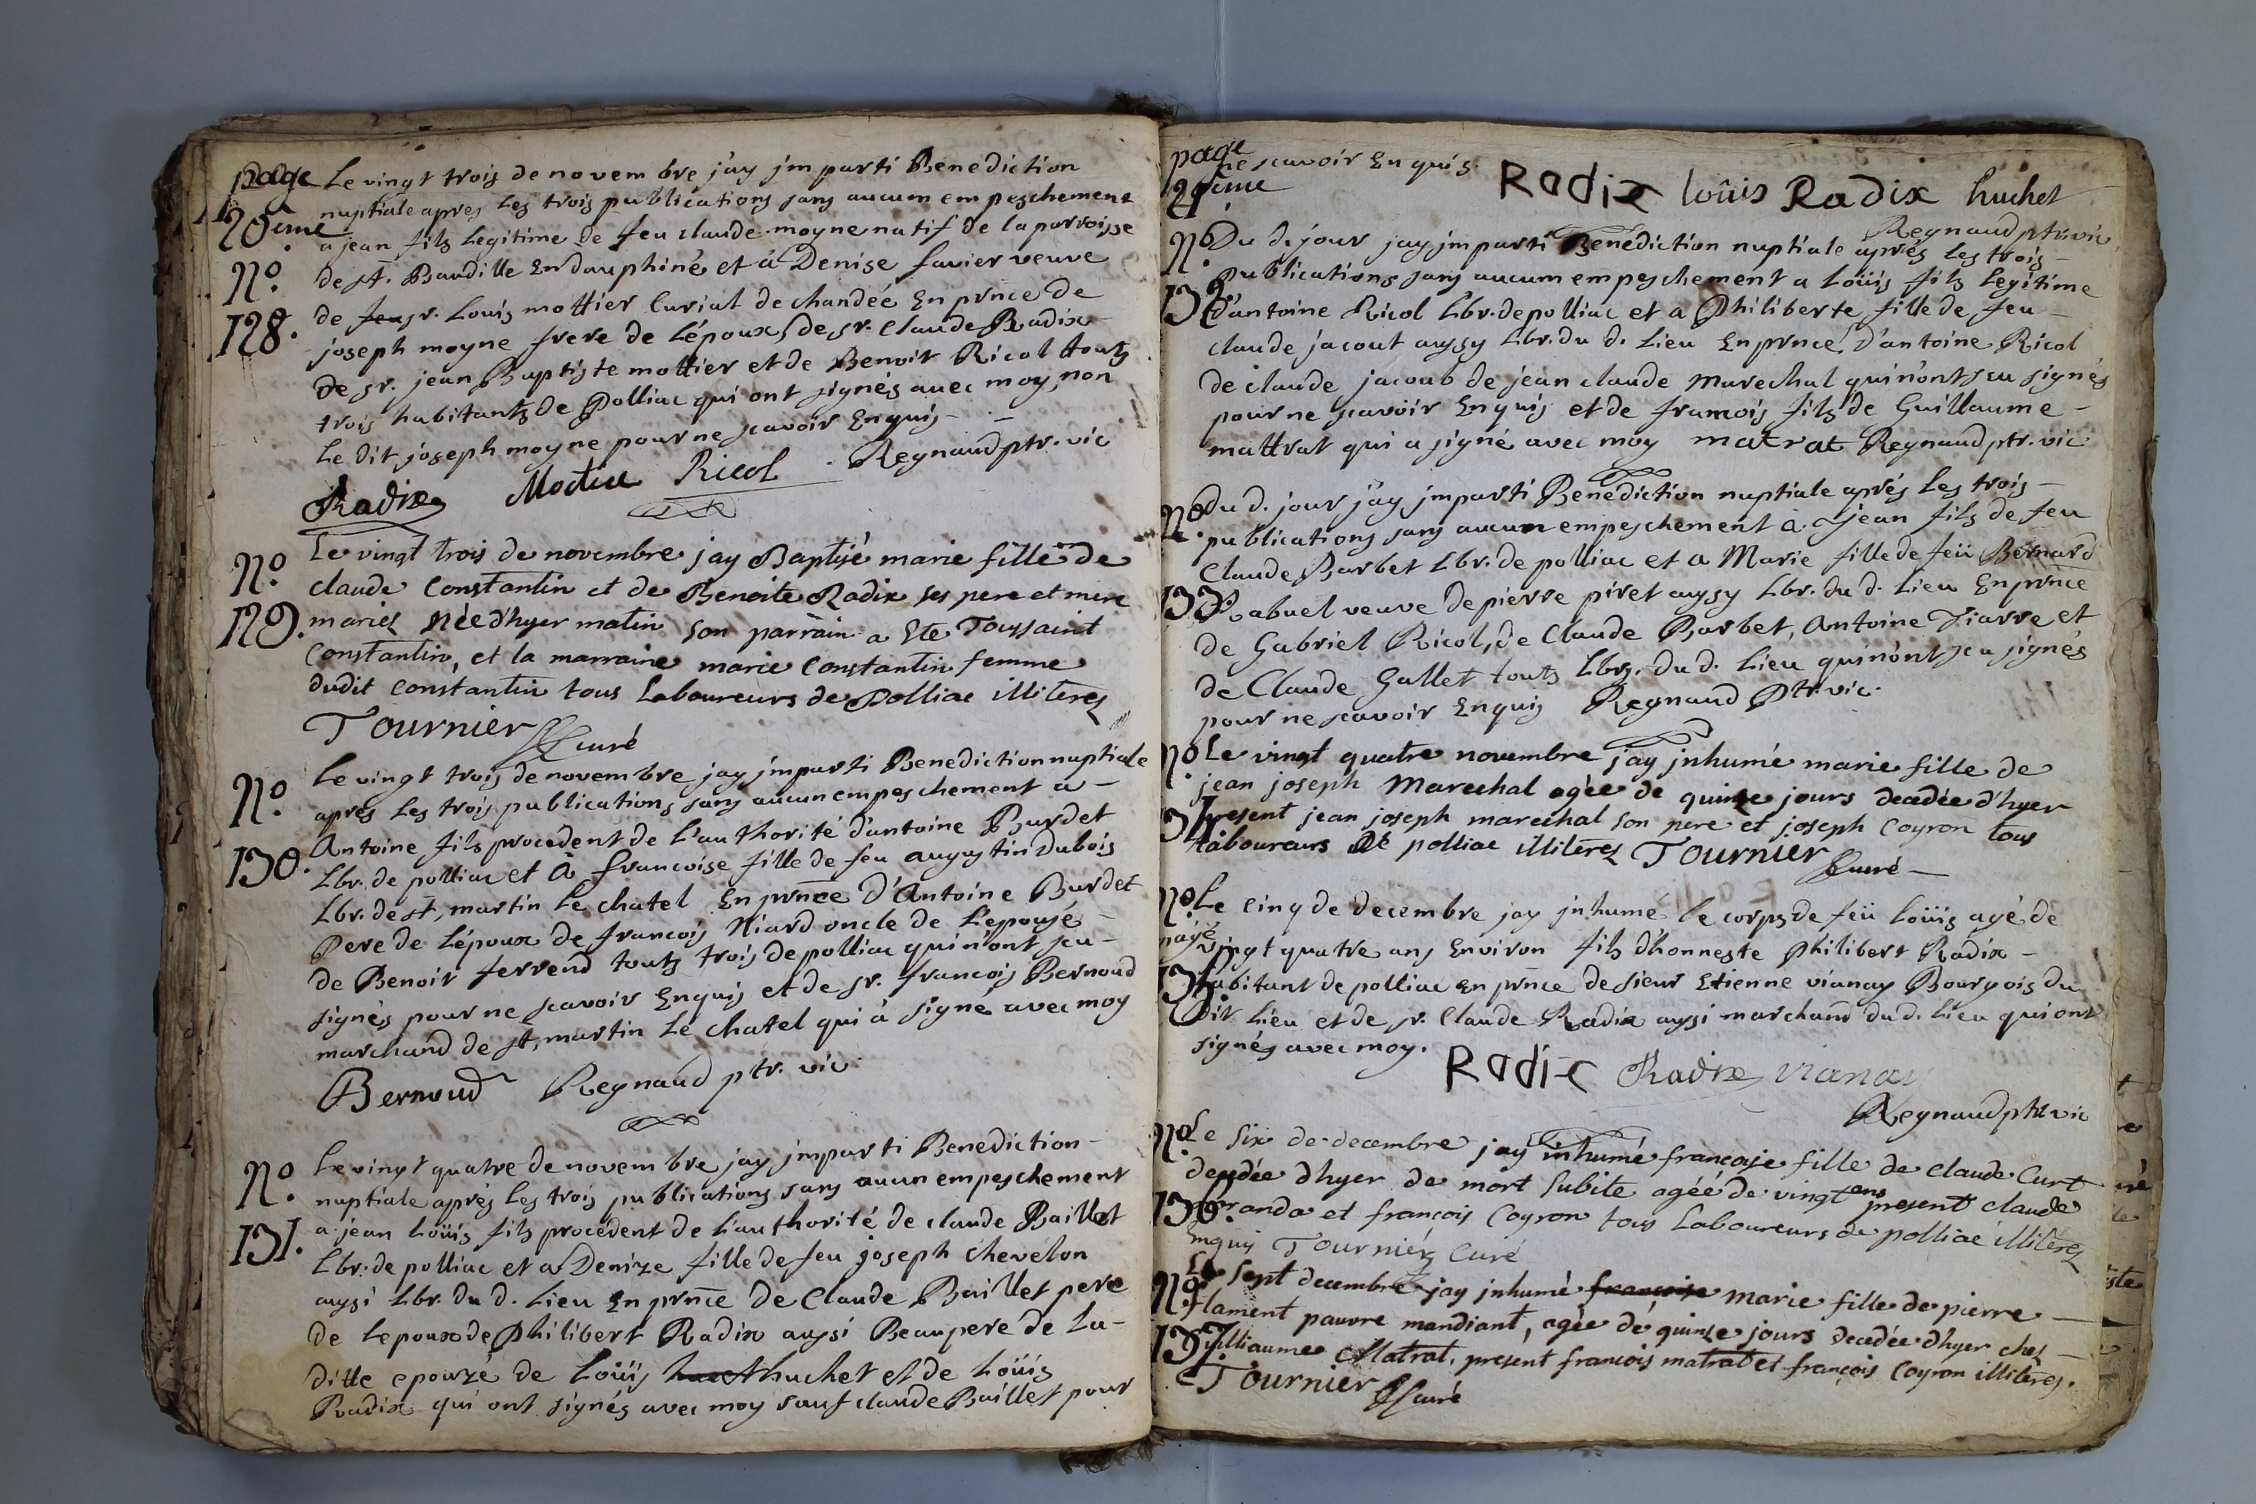 page
20eme
Le vingt trois de novembre j'ay jmparti Benediction
nuptiale apres les trois publications sans aucum empeschement
a jean fils legitime de feu claude moyne natif de la parroisse
No.
de st. Baudille En dauphiné et a Denise favier veuve
128.
de feu sr. Louis mottier Curial de chandéé En prnce de
joseph moyne frere de L'époux, de sr. Claude Radix
de sr. jean Baptiste mottier et de Benoit Ricol touts
trois habitants de Polliac qui ont signés avec moy, non
Le dit joseph moyne pour ne scavoir Enquis
Radix Ricol Regnaud ptr. vic
No
129.
Le vingt trois de novembre jay Baptisé marie fille de
claude Constantin et de Benoite Radix ses pere et mere
mariés Née d'hyer matin son parrain a Ete Toussaint
Constantin, et la marraine marie Constantin femme
dudit Constantin tous Laboureurs de Polliac illitères
Tournier curé
No
130.
Le vingt trois de novembre jay jmparti Benediction nuptiale
aprés les trois publications sans aucun empeschement a
Antoine fils procedent de l'authorité d'antoine Burdet
Lbr. de polliac et à francoise fille de feu augustin Dubois
Lbr. de st, martin le chatel En prnce d'Antoine Burdet
Pere de L'époux de francois Niard oncle de L'epousé
de Benoit ferrend touts trois de polliac qui n'ont scu
signés pour ne scavoir Enquis et de sr. francois Bernoud
marchand de st, martin le chatel qui à signé avec moy
Bernoud Regnaud ptr. vic
No.
131.
Le vingt quatre de novembre jay jmparti Benediction
nuptiale aprés les trois publications sans aucun empeschement
a jean Loüis fils procédent de Lauthorité de claude Baillet
Lbr. de polliac et a Denize fille de feu joseph chevelon
aussi Lbr. du d. Lieu En prnce de Claude Baillet pere
de Lepoux de Philibert Radix aussi Beaupere de la
ditte epouze de Loüis huchet et de Loüis
Radix qui ont signés avec moy sauf claude Baillet pour
page
21eme
ne scavoir Enquis.
Radix loüis Radix huchet
Regnaud ptr. vic
No
132
Du d. jour jay jmparti Benediction nuptiale aprés les trois
publications sans aucum empeschement a Loüis fils legitime
d'antoine Ricol Lbr. de polliac et a Philiberte fille de feu
claude jacout aussy Lbr. du d. Lieu En prnce, d'antoine Ricol
de claude jacoub de jean claude marechal qui n'ont sceu signés
pour ne scavoir Enquis et de francois fils de Guillaume
mattrat qui a signé avec moy matrat Regnaud ptr. vic
No
133
du d. jour j'ay jmparti Benediction nuptiale aprés les trois
publications sans aucum empeschement à jean fils de feu
Claude Barbet Lbr. de polliac et a Marie fille de feü Bernard
Rabuel veuve de pierre piret aussy Lbr. du d. Lieu En prnce
de Gabriel Ricol, de Claude Barbet, Antoine et
de Claude Gallet touts Lbrs. du d. Lieu qui n'ont scu signés
pour ne scavoir Enquis Regnaud Ptr. vic.
No
134
Le vingt quatre novembre jay jnhumé marie fille de
jean joseph Marechal agée de quinze jours decedée d'hyer
present jean joseph marechal son pere et joseph Coyron tous
Laboureurs de polliac illitères Tournier curé
No.
135
Le cinq de decembre jay jnhumé le corps de feü Loüis agé de
vingt quatre ans Environ fils d'honneste Philibert Radix
habitant de polliac en prnce de sieur Etienne vianay Bourgois du
dit Lieu et de sr. Claude Radix aussi marchand du d. Lieu qui ont
signés avec moy.
Radix Radix vianay
Regnaud ptr vic
No
136.
Le six de decembre jay inhumé francoise fille de claude Curt
decedée d'hyer de mort subite agéé de vingt ans present claude
et francois Coyron tous Laboureurs de polliac illitères
Enquis Tournier Curé
No
137.
Le sept decembre jay jnhumé francoise marie fille de pierre
flament pauvre mandiant, agée de quinze jours decedée d'hyer ches
Guilliaume Matrat, present francois matrat et françois Coyron illitères.
Tournier curé